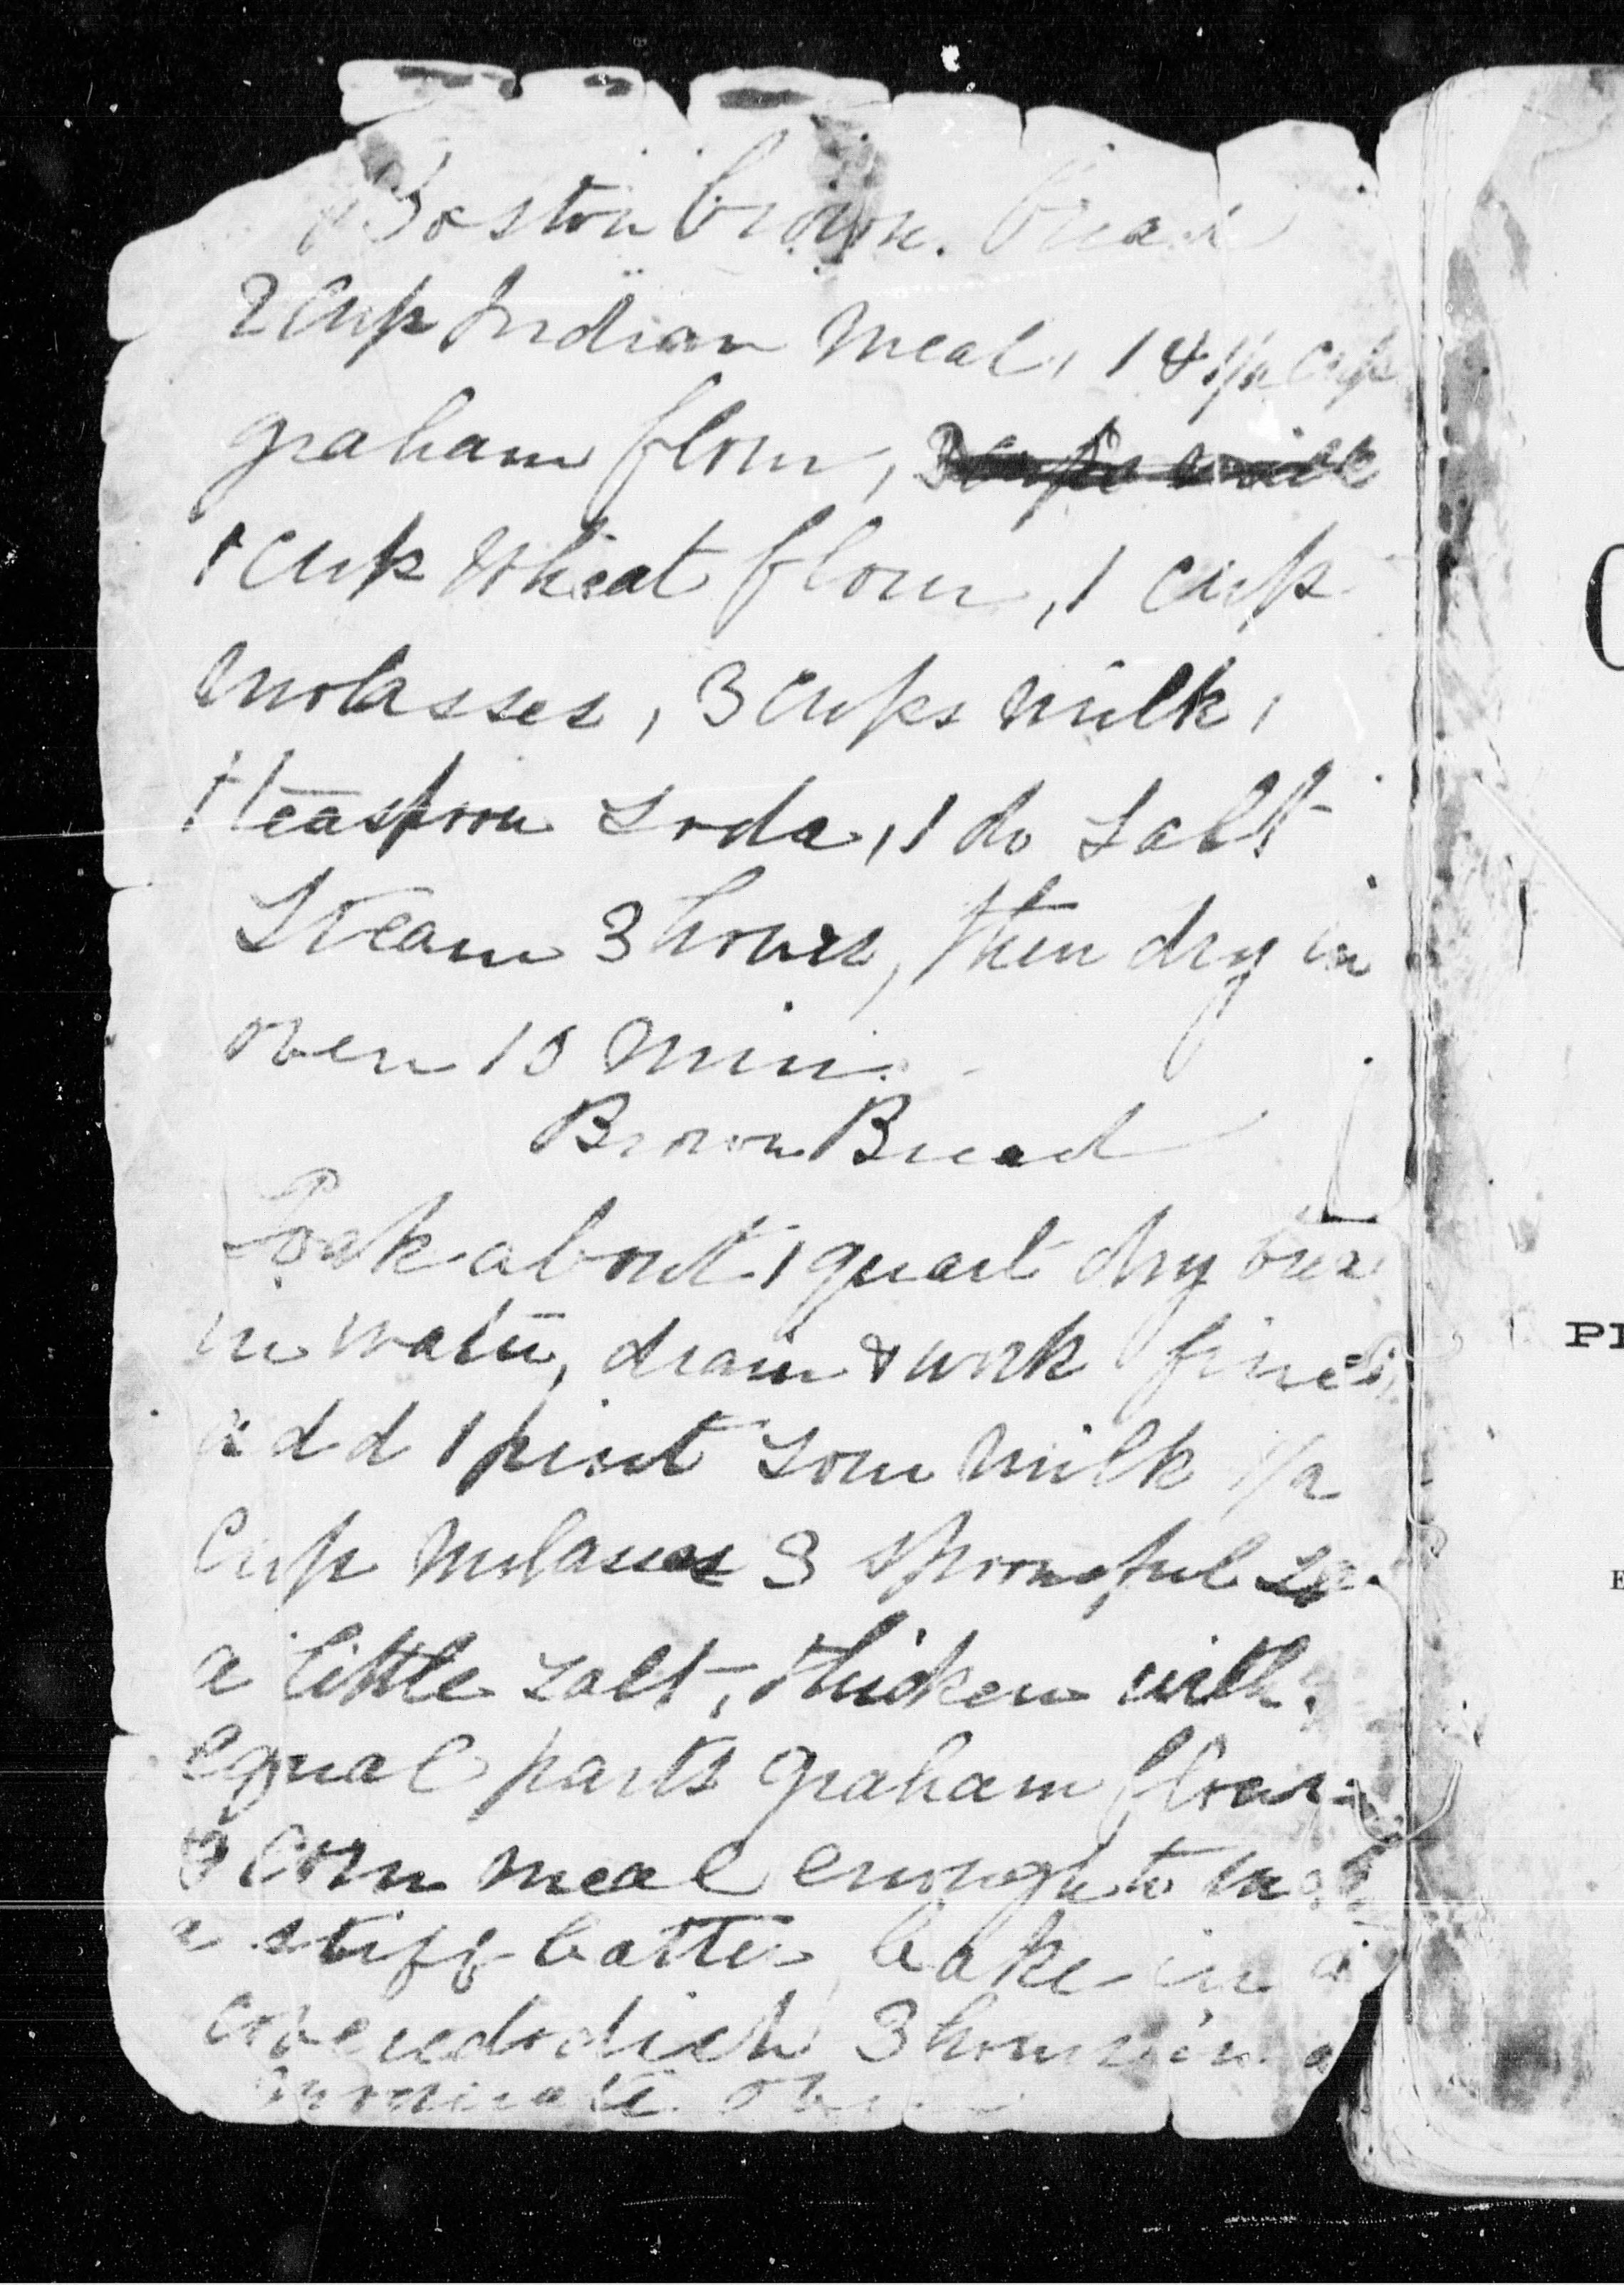 Boston brown. bread
2 cup Indian meal, 1 & 1/2 cup
graham flour, 3 cups milk
1 cup wheat flour, 1 cup
molasses, 3 cups milk,
1 teaspoon soda, 1 do salt
Steam 3 hours, then dry in
oven 10 min.
Brown Bread
Soak about 1 quart dry brea
in water, drain & work fine
add 1 pint sour milk 1/2
cup molasses 3 spoonsful
a little salt, thicken with
equal parts graham flour
& corn meal enough to
a stiff batter bake in a
covered dish 3 hours in a
moderate oven
PI
E